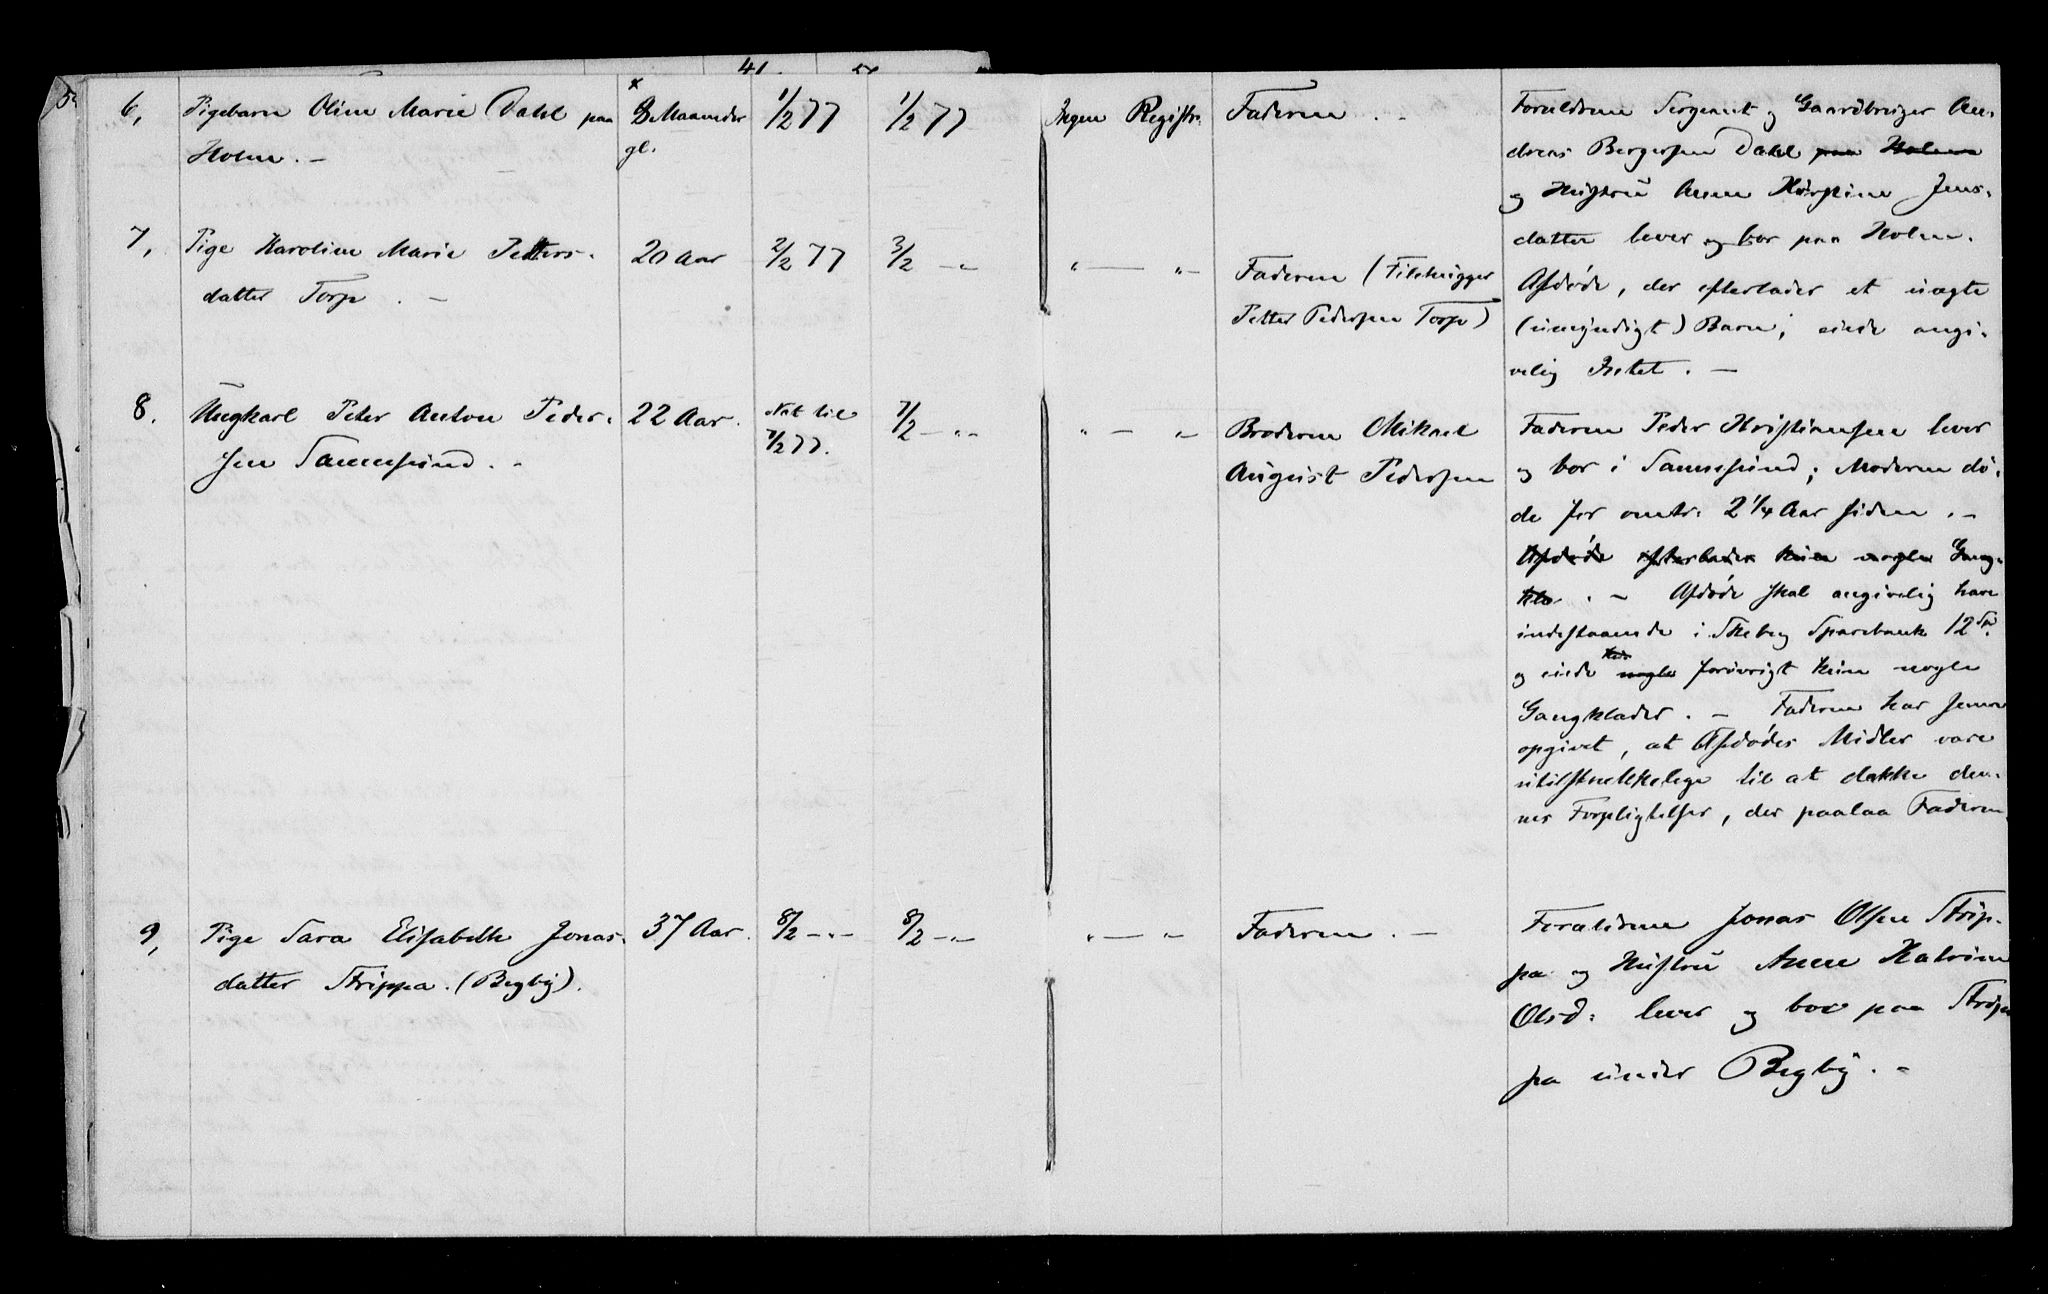 6, Pigebarn Oline Marie Dahl paa
Holm. –
Maaneder
gl.
1/2 77
1/2 77
Ingen Registr.
Faderen. –
Forældrene Sergeant og Gaardbruger An-
dreas Bergersen Dahl paa Holm
og Hustru Anne Jens-
datter lever og bor paa Holm.
7, Pige Karoline Marie Petters-
datter Torp. –
20 Aar
2/2 77
3/2 – „
„ — „ –
Faderen (Filehugger
Petter Pedersen Torp)
Afdøde, der efterlader et uægte
(umyndigt) Barn, eiede angi-
velig Intet. –
8. Ungkarl Peter Anton Peder-
sen Sannesund. –
22 Aar.
Nat til
7/2 77.
7/2 – „ –
„ – „ –
Broderen Mikael
August Pedersen
Faderen Peder Kristiansen lever
og bor i Sannesund; Moderen dø-
de for omtr. 2 1/4 Aar siden. –
Afdøde efterlader kun nogle Gang-
klæ. – Afdøde skal angivelig have
indestaaende i Skebeg Sparebank 12 Sp.
og eiede nogle forøvrigt kun nogle
Gangklæder. – Faderen har senere
opgivet, at Afdødes Midler vare
utilstrækkelige til at dække den-
nes Forpligtelser, der paalaa Faderen.
9, Pige Sara Elisabeth Jonas-
datter Strippa. (Begby).
37 Aar.
8/2 – „ –
8/2 – „ –
„ – „
Faderen. –
Forældrene Jonas Olsen Strip-
pa og Hustru Anne Katrine
Olsd: lever og bor paa Strip-
pa under Begby. –